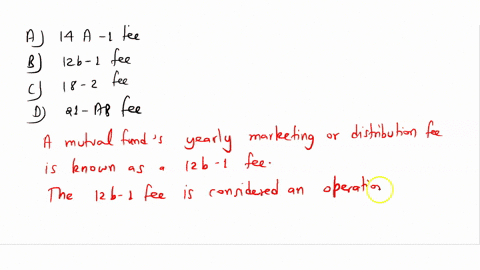 A) 14 A-1 fee
B) 12b-1 fee
C) 18-2 fee
D) 21-A8 fee
A mutual fund's yearly marketing or distribution fee
is known as a 12b-1 fee.
The 12b-1 fee is considered an operatio